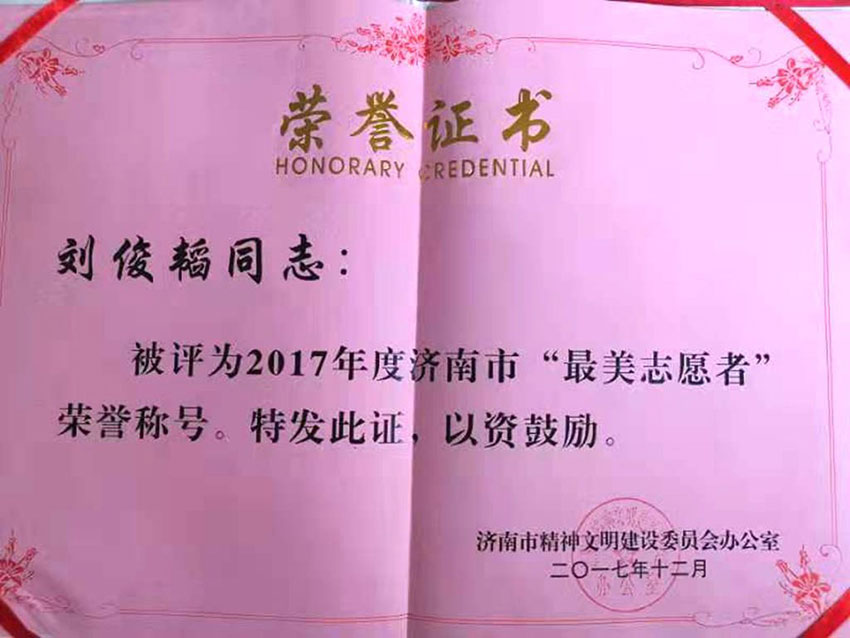 荣誉证书
HONORARY CREDENTIAL
刘俊韬同志：
被评为2017年度济南市“最美志愿者”
荣誉称号。特发此证，以资鼓励。
济南市精神文明建设委员会办公室
二〇一七年十二月
办公室